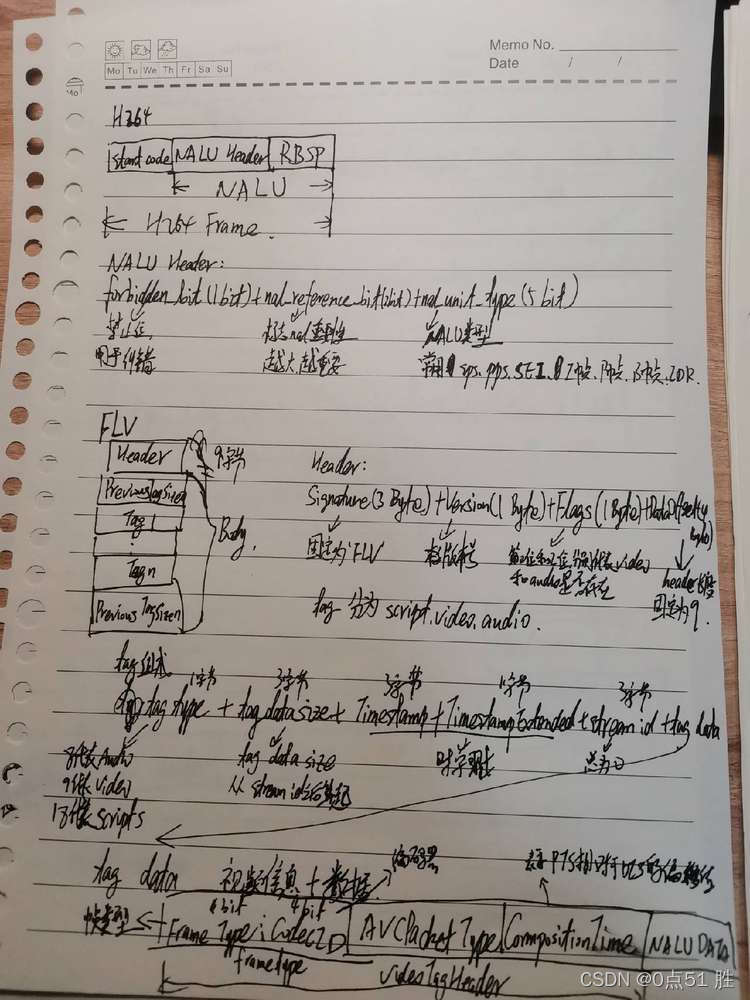 Memo No.
Mo Tu We Th Fr Sa Su
Date / /
Mo
H264
start code NALU Header RBSP
NALU
H264 Frame.
NALU Header:
forbidden_bit (1bit) + nal_reference_bit(2bit) + nal_unit_type (5 bit)
禁止位 标志nal重要性 NALU类型
用于纠错 越大,越重要 常用 sps.pps.SEI. I帧.P帧.B帧.IDR.
FLV
Header 9字节 Header:
Previous Tag Size0 Signature(3 Byte) + Version(1 Byte) + Flags (1 Byte) + DataOffset(4 Byte)
Tag 1 Body. 固定为FLV 版本号 第0位和2位分别代表video
Tag n 和audio是否存在 header长度
固定为9.
Previous TagSizen tag 分为 script.video.audio.
tag组成
1字节 3字节 3字节 1字节 3字节
tag type + tag data size + Timestamp + TimestampExtended + stream id + tag data
8代表Audio tag data size 时间戳 总为0
9代表video 从 stream id后算起
18代表scripts
tag data 视频信息 + 数据 编码器 表示PTS相对于DTS的偏移值
4bit 4bit
帧类型 FrameType CodecID AVCPacketType CompositionTime NALU DATA
frametype videoTagHeader
CSDN @0点51 胜